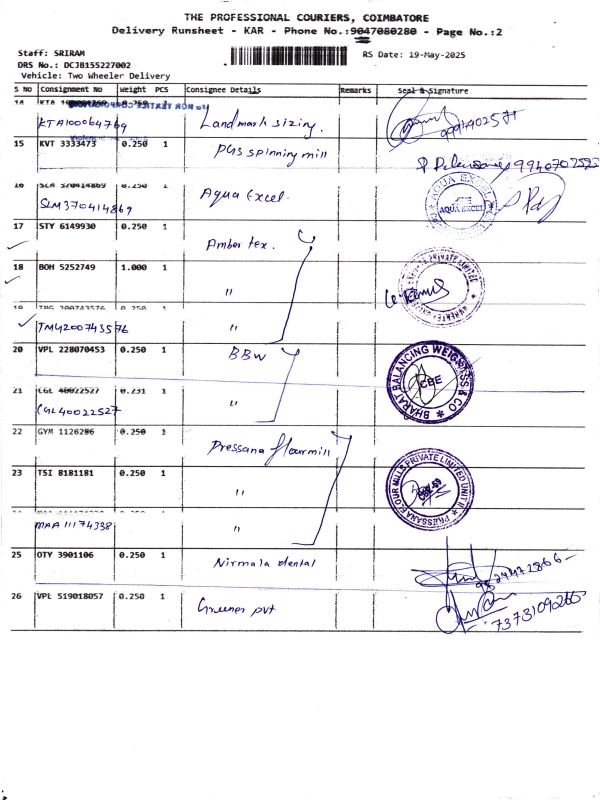 THE PROFESSIONAL COURIERS, COIMBATORE
Delivery Runsheet - KAR - Phone No.:9047080280 - Page No.:2
Staf: SRIRAM
DRS No.: DCJB155227002
RS Date: 19-May-2025
Vehicle: Two Wheeler Delivery
S NO Consignment No Weight PCS Consignee Details Remarks Seal & Signature
14 0.250 1
KTA100064769 Landmark sizing.
15 KVT 3333473 0.250 1 PGS spinning mill 9940702522
16 SLM 370414869 0.250 1
SLM370414869 Aqua Excel.
AQUA EXCEL
17 STY 6149930 0.250 1 Amber tex.
18 BOH 5252749 1.000 1 "
PRIVATE LIMITED
19 TMG 200743576 0.250 1
TMG200743576 "
20 VPL 228070453 0.250 1 BBW
BHARAT BALANCING WEIGHTSS & CO
CBE
21 CGL 40022527 0.231 1
CGL40022527 "
22 GYM 1126286 0.250 1 Pressana flourmill
23 TSI 8181181 0.250 1 "
PRESSANA FLOUR MILLS PRIVATE LIMITED UNIT II
MAA 11174338 "
25 OTY 3901106 0.250 1 Nirmala dental
26 VPL 519018057 0.250 1 Greenor pvt